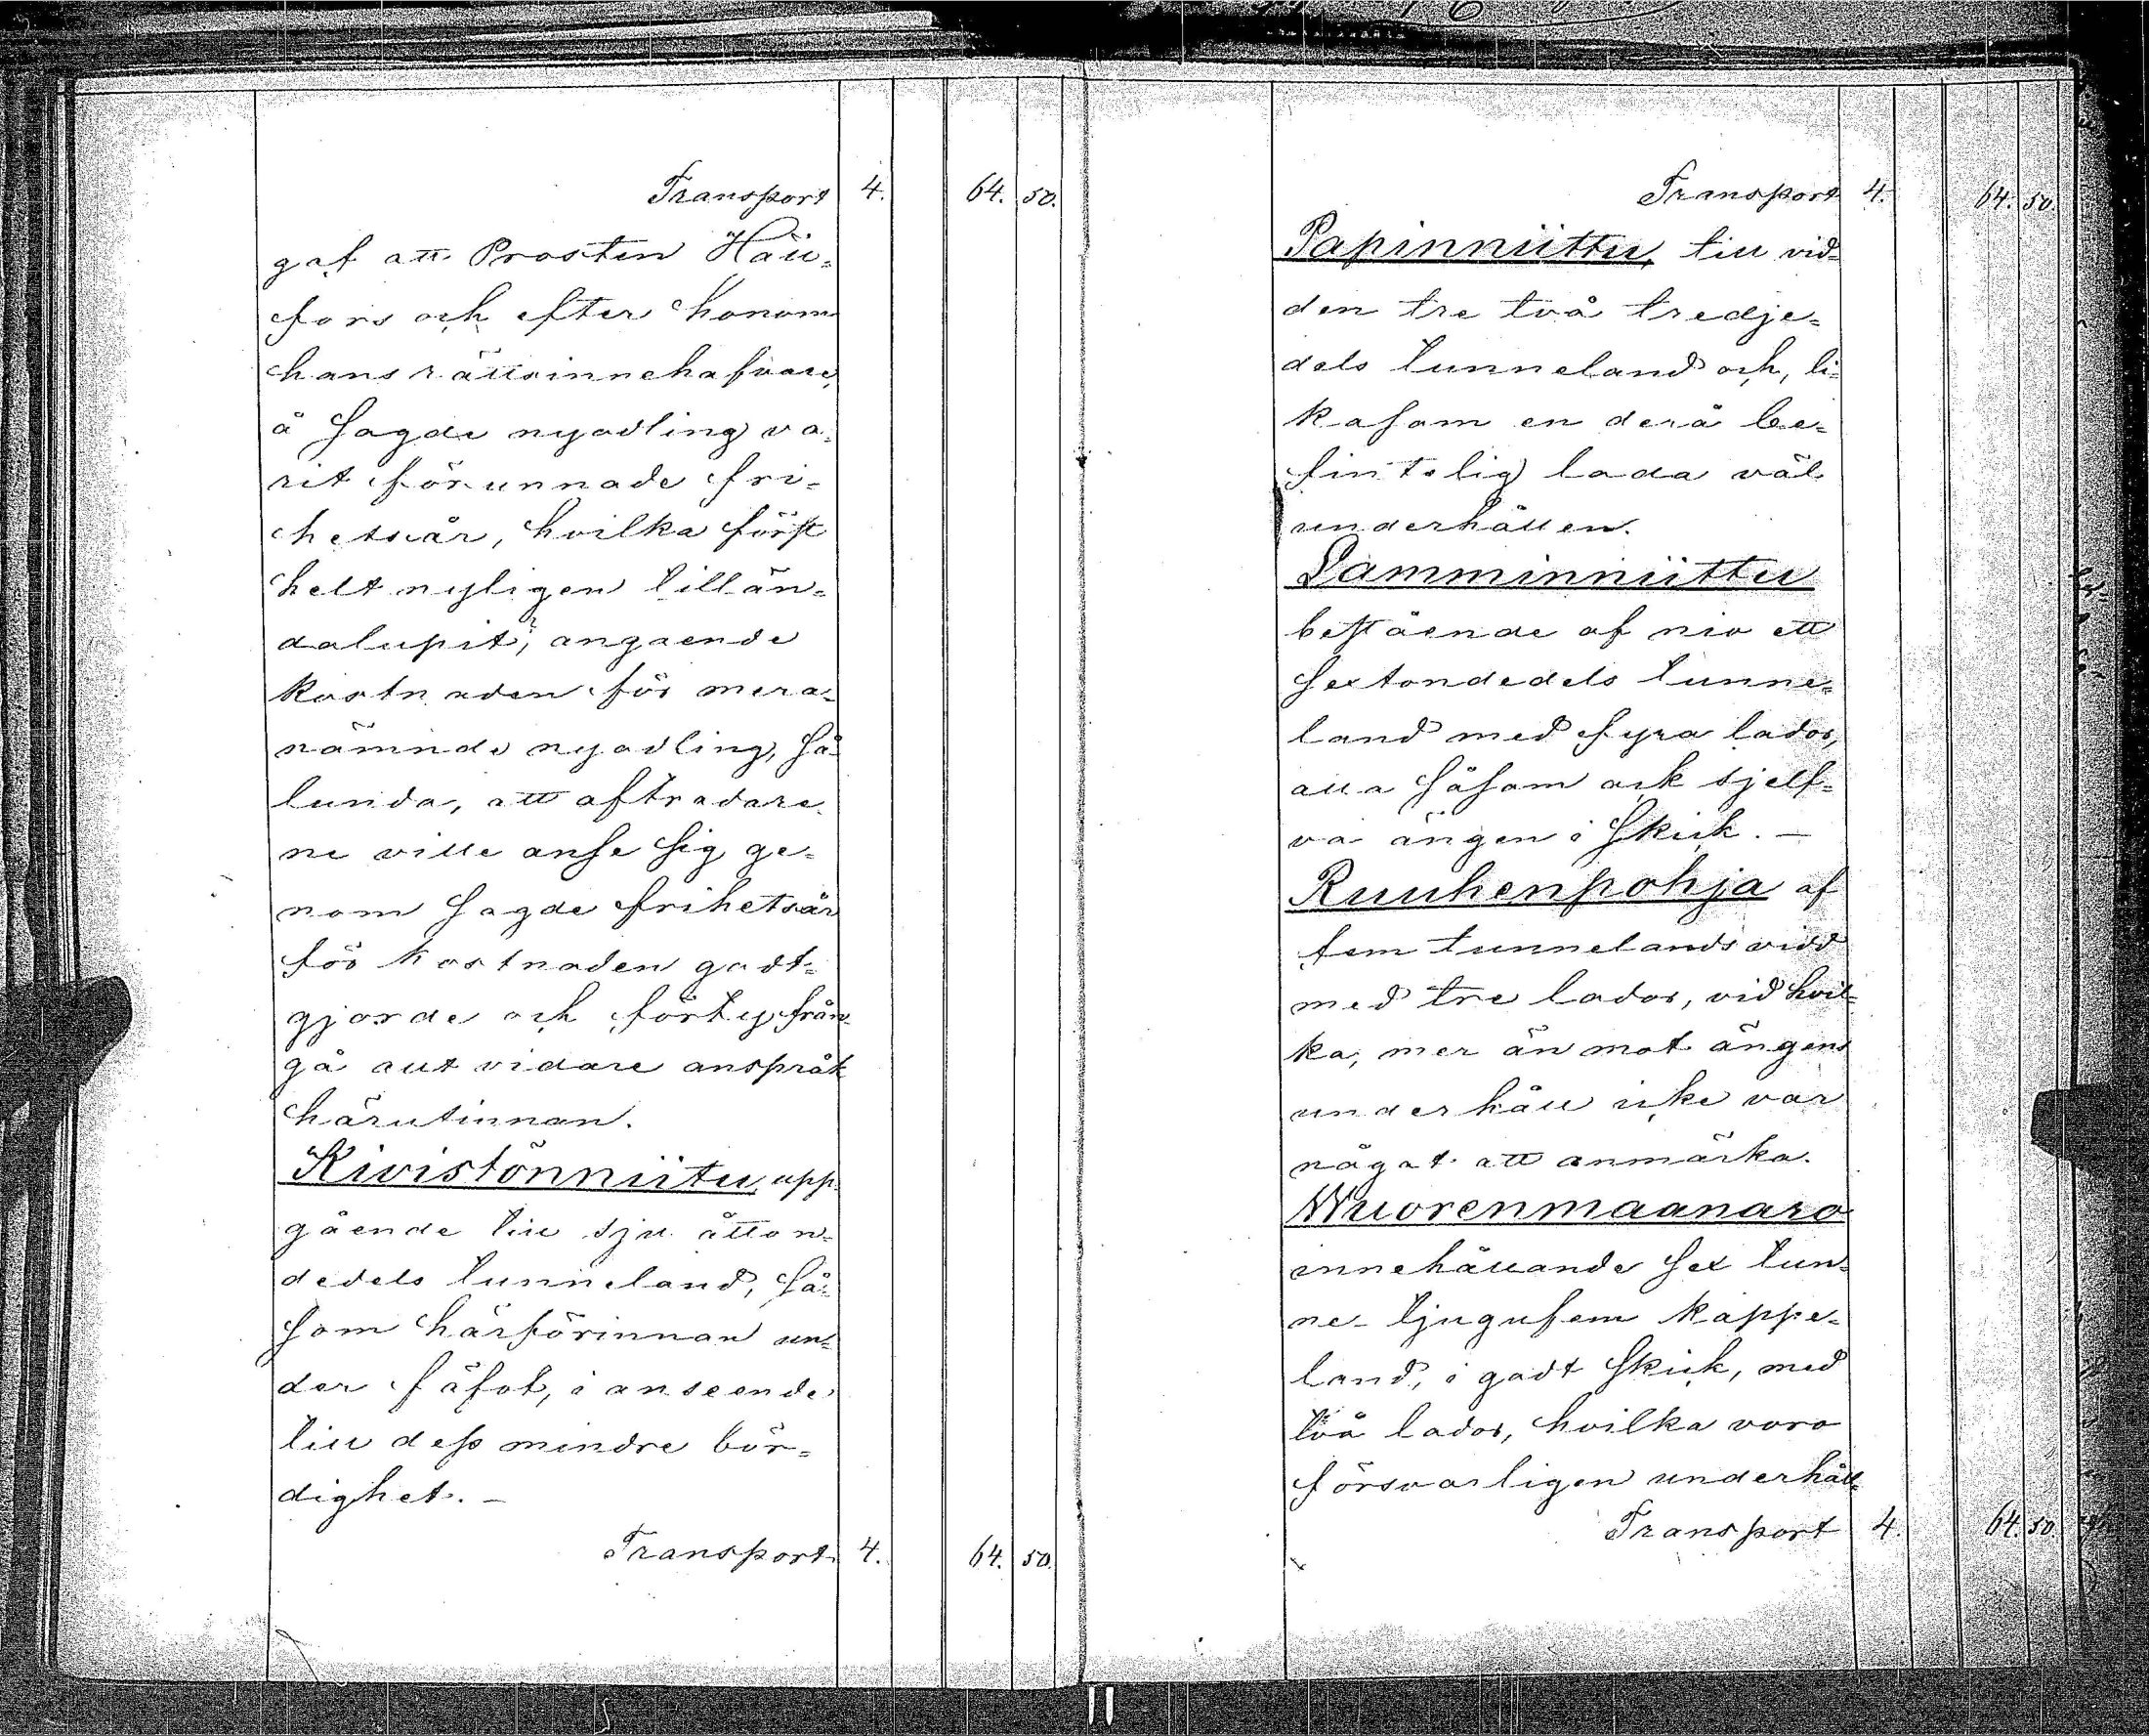 Transport 4. 64. 50.
gaf att Prosten Häll=
fors och efter honom
hans rättsinnehafvare,
å sagde nyodling va=
rit förunnade fri=
hetsår, hvilka först
helt nyligen tillän=
dalupit; angaende
kostnaden för mera=
nämnde nyodling, så=
lunda, att aftradare=
ne ville anse sig ge=
nom sagde frihetsår
för kostnaden godt=
gjorde och förty från=
gå allt vidare anspråk
härutinnan.
Kivistönniitu, upp=
gående till sju åtton=
dedels tunneland, så=
som härförinnan un=
der fäfot, i anseende
till dess mindre bör=
dighet. —
Transport 4. 64. 50.
Transport 4. 64. 50.
Papinniittu, till vid=
den tre två tredje=
dels tunneland och, li=
kasom en derå be=
fintelig lada väl
underhållen.
Lamminniittu
bestående af nio ett
sextondedels tunne=
land med fyra lador,
alla såsom ock sjelf=
va ängen i skick. —
Ruuhenpohja af
fem tunnelands vidd
med tre lador, vid hvil=
ka, mer än mot ängens
underhåll icke var
något att anmärka.
Wuorenmaanaro
innehållande sex tun=
ne- tjugufem kappe=
land, i godt skick, med
två lador, hvilka voro
försvarligen underhåll=
Transport 4. 64. 50.